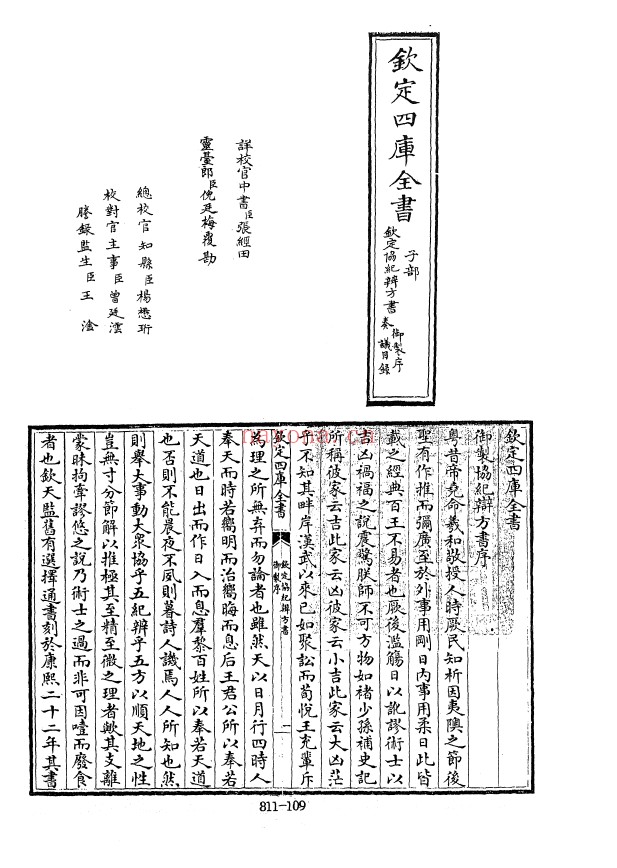 欽定四庫全書
子部
欽定協紀辨方書
御製序
奏議目錄
詳校官中書臣張經田
靈臺郎臣倪廷梅覆勘
總校官知縣臣楊懋珩
校對官主事臣曾廷澐
謄錄監生臣王淦
欽定四庫全書
御製協紀辨方書序
粤昔帝堯命羲和敬授人時厥民知析因夷隩之節後
聖有作推而彌廣至於外事用剛日內事用柔日此皆
載之經典百王不易者也厥後濫觴日以訛謬術士以
吉凶禍福之說震驚朕師不可方物如褚少孫補史記
所稱彼家云吉此家云凶彼家云小吉此家云大凶茫
乎不知其畔岸漢武以來已如聚訟而荀悅王充輩斥
欽定四庫全書
欽定協紀辨方書
御製序
一
為理之所無弃而勿論者也雖然天以日月行四時人
奉天而時若嚮明而治嚮晦而息后王君公所以奉若
天道也日出而作日入而息羣黎百姓所以奉若天道
也否則不能晨夜不夙則暮詩人譏焉人人所知也然
則舉大事動大衆協乎五紀辨乎五方以順天地之性
豈無寸分節解以推極其至精至微之理者歟其支離
蒙昧拘牽謬悠之說乃術士之過而非可因噎而廢食
者也欽天監舊有選擇通書刻於康熙二十二年其書
811-109